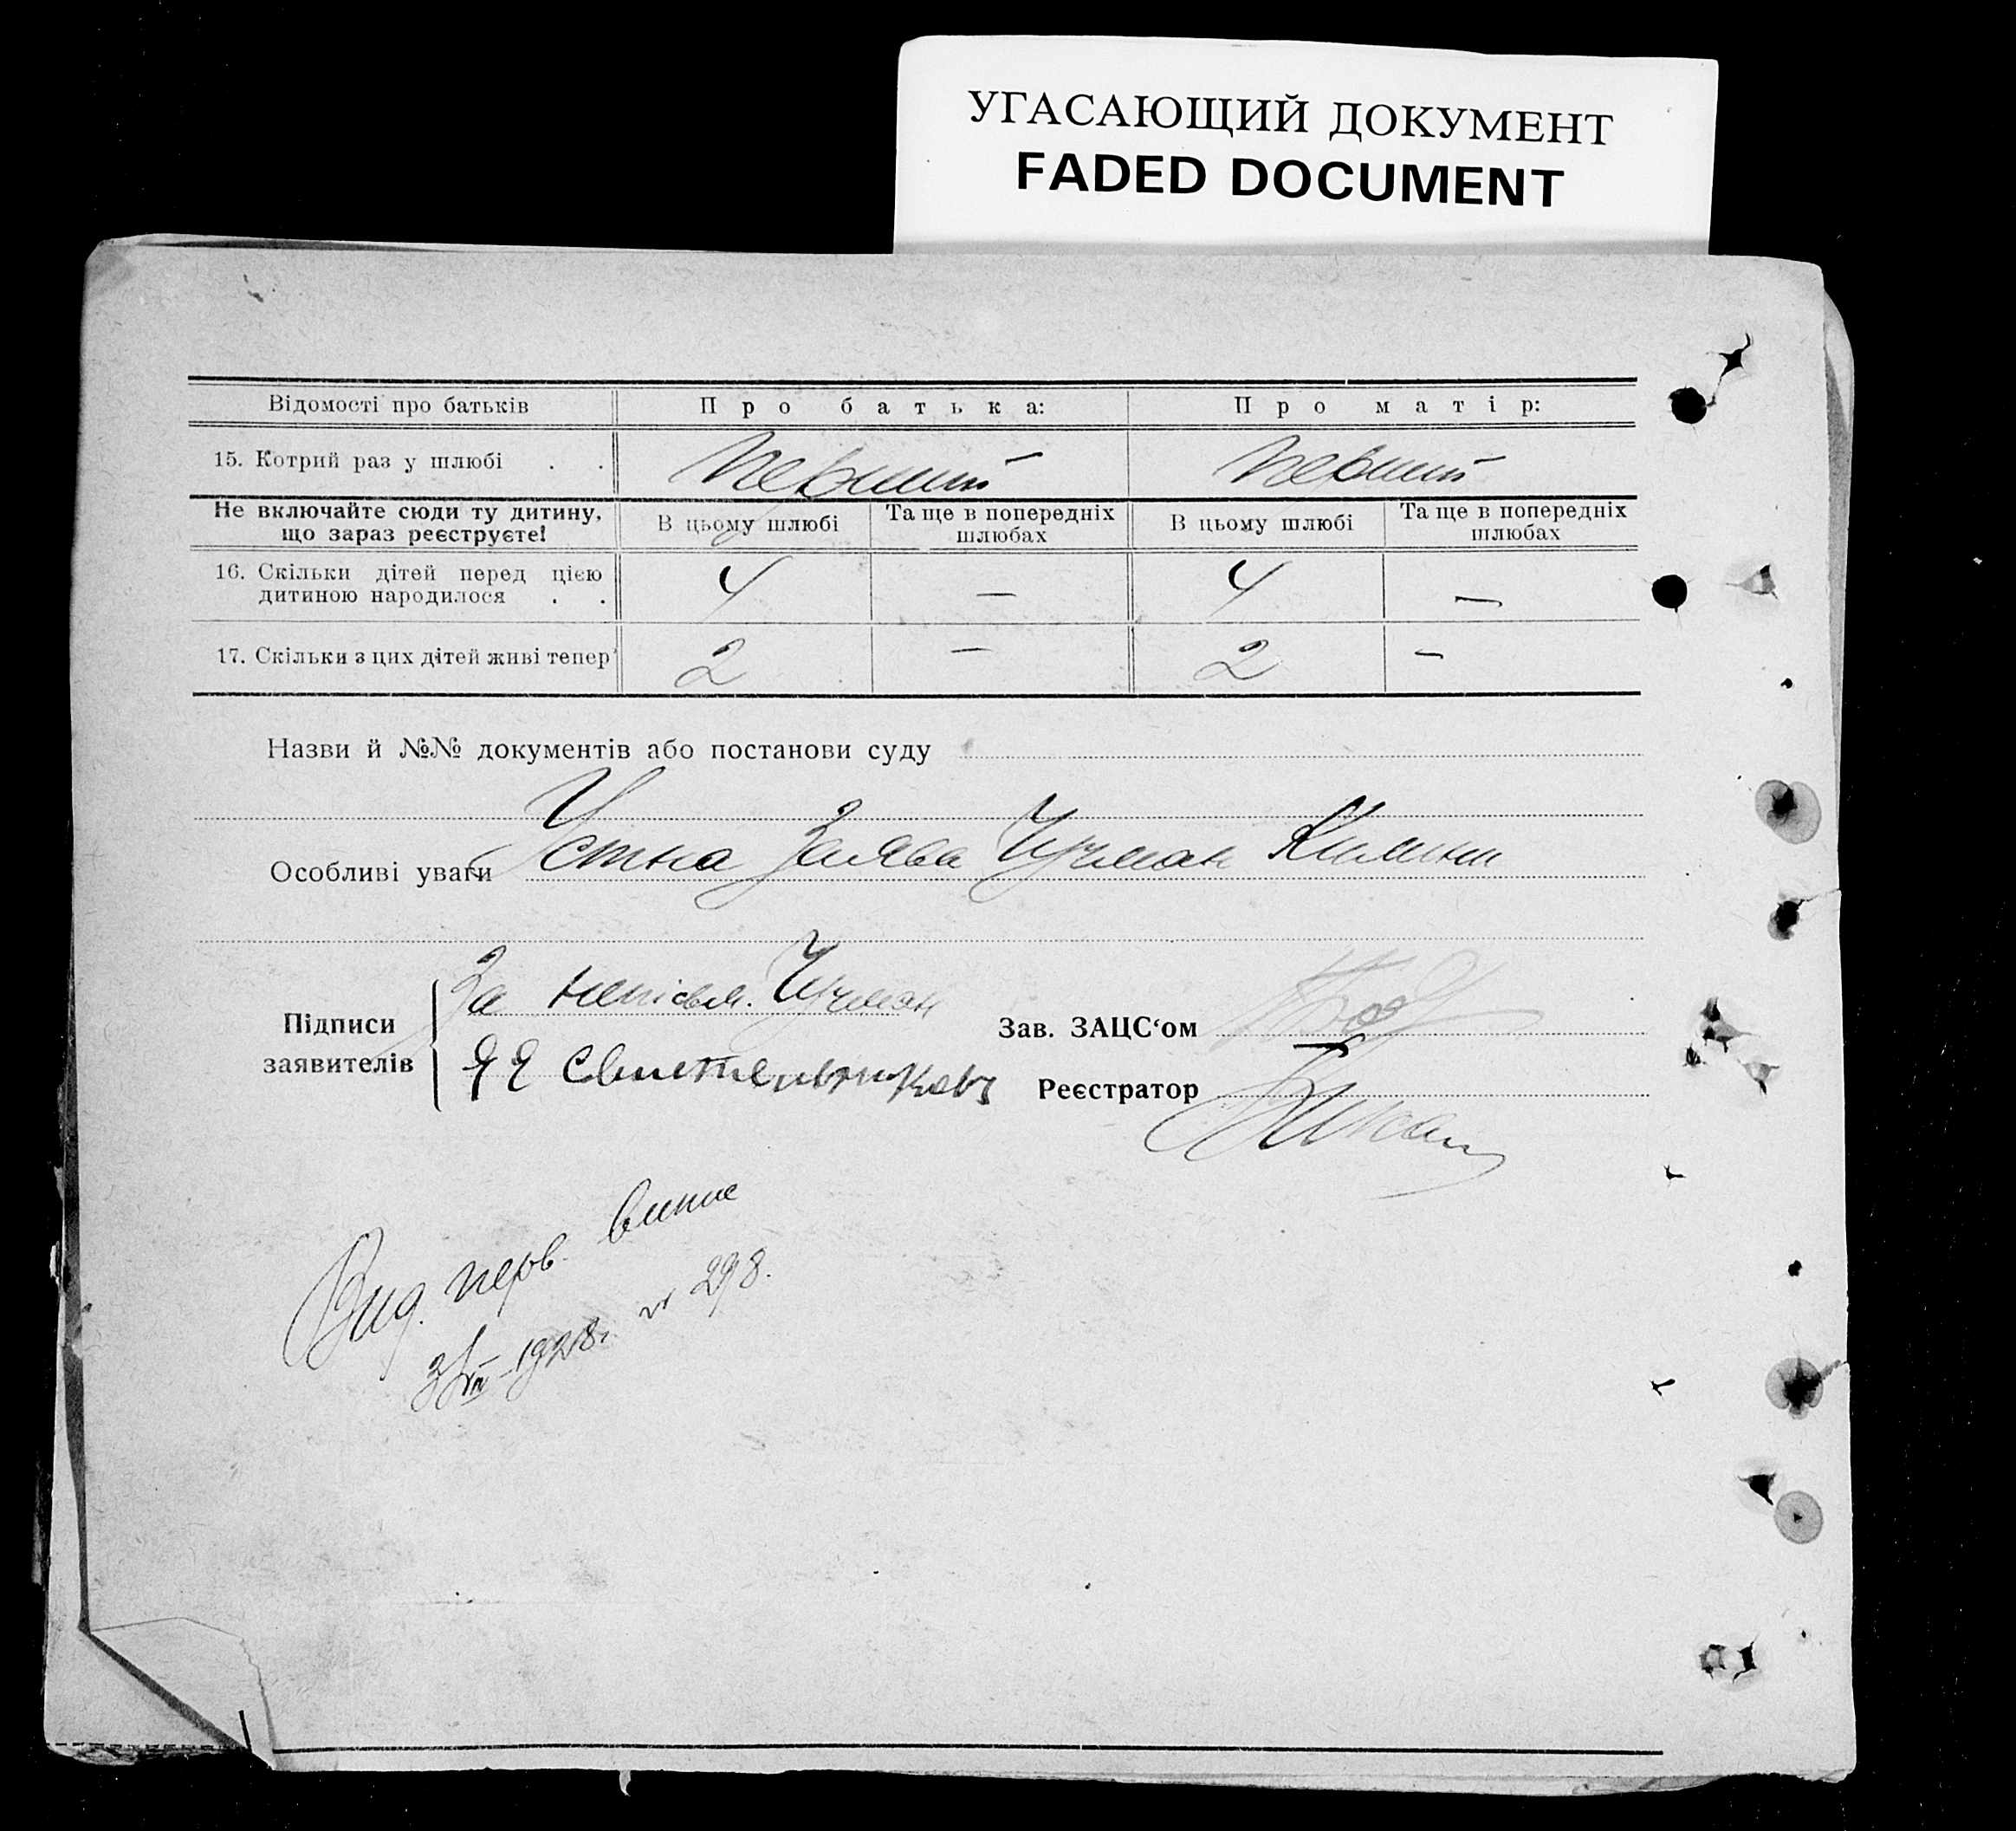 УГАСАЮЩИЙ ДОКУМЕНТ
FADED DOCUMENT
Відомості про батьків Про батька: Про матір:
15. Котрий раз у шлюбі . . первший первший
Не включайте сюди ту дитину, що зараз реєструєте! В цьому шлюбі Та ще в попередніх шлюбах В цьому шлюбі Та ще в попередніх шлюбах
16. Скільки дітей перед цією
дитиною народилося . . 4 — 4 —
17. Скільки з цих дітей живі тепер 2 — 2 —
Назви й №№ документів або постанови суду
Особливі уваги Устна Заява
За
Підписи
заявителів
Зав. ЗАЦС‘ом
Реєстратор
Вид. перв. випис
1928 г. № 298.